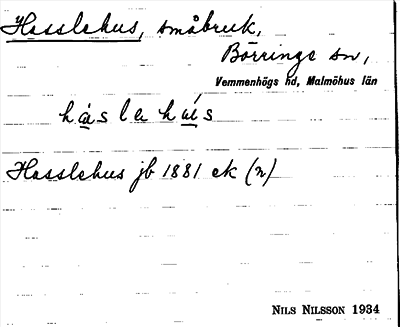 Hasslehus, småbruk,
Börringe sn,
Vemmenhögs hd, Malmöhus län
hásle hús
Hasslehus jb 1881 ek (n)
NILS NILSSON 1934